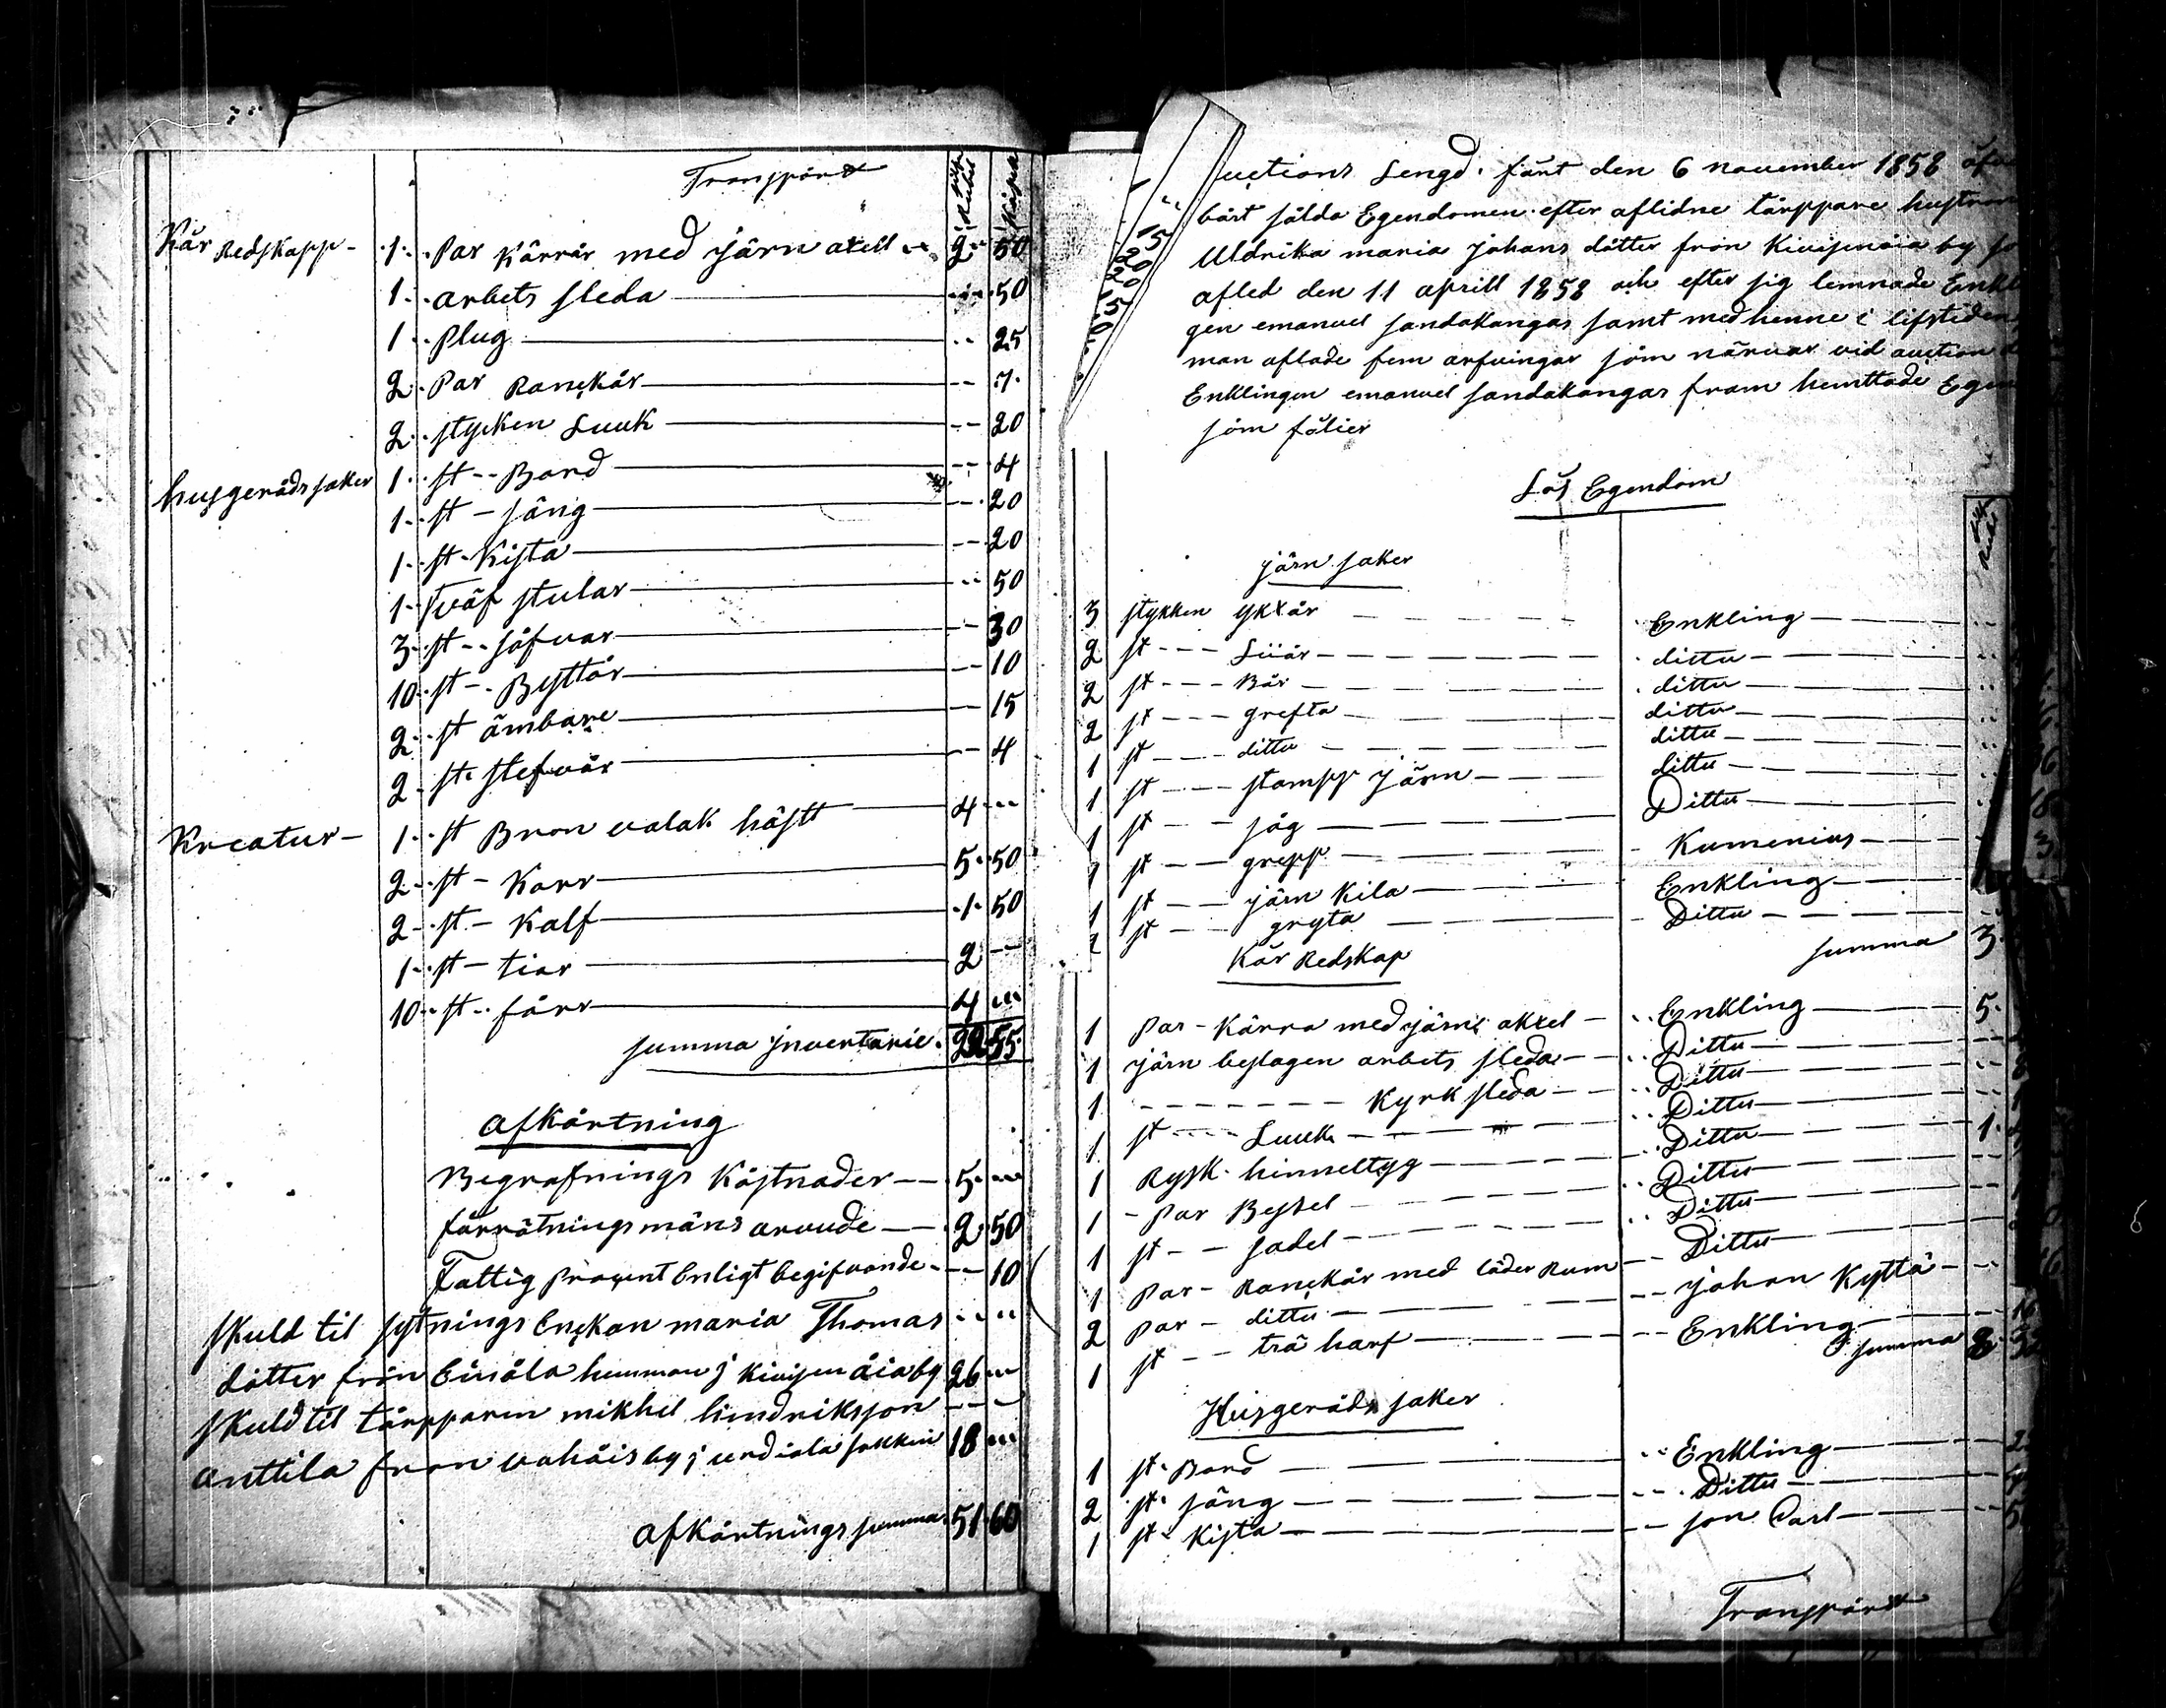 Transpårt Silf Rubel Kåpek
Kår Redskapp - 1 Par Kärrår med järn axell 2 50
1 arbets sleda 50
1 Plug 25
2 Par Ranckår 7
2 stycken Luuk 20
husgeråds saker 1 st Bord 4
1 st säng 20
1 st Kista 20
1 Tväf stular 50
3 st såfvar 30
10 st Byttår 10
2 st ämbare 15
2 st stefvår 4
Kreatur - 1 st Bron valak häst 4
2 st Korr 5 50
2 st Kalf 1 50
1 st tior 2
10 st fårr 4
summa inventarie 22 55
afkårtning
Begrafnings Kåstnader 5
förrätningsmäns arvude 2 50
Fattig Procent Enligt begifvande 10
skuld til sytnings Enckan maria Thomas
dåtter från Einåla hemman j Kivisenåia by 26
skuld til tårpparen mikhel hindriksson
anttila från vahåis by j urdiala sokken 18
afkårtnings summa 51 60
15
20
20
15
uctions Lengd fört den 6 november 1858 öfv
bårt sålda Egendomen efter aflidne tårppare hustrun
Uldrika maria johans dåtter från Kivisenåia by so
afled den 11 aprill 1858 och efter sig lemnade Enkl
gen emanuel sandakangas samt med henne i lifstiden
man aflade fem arfvingar såm närvar vid auction
Enklingen emanuel sandakangas fram hemttade Egen
såm fölier
Lås Egendom
järn saker
3 stykken ykxår Enkling
2 st Liiår dittu
2 st Bår dittu
2 st grefta dittu
1 st dittu dittu
1 st stamp järn dittu
1 st såg Dittu
1 st grepp Kumenius
1 st järn Kila Enkling
1 st gryta Dittu
summa 3
Kår Redskap
1 Par - Kärra med järn akxel Enkling 5
1 järn beslagen arbets sleda Dittu
1 Kyrk sleda Dittu
1 st Luuk Dittu
1 Rysk himeltyg Dittu 1
1 Par Betsel Dittu
1 st sadel Dittu
1 Par - Ranckår med läder Rum Dittu
2 Par - dittu johan Kyttä
1 st trä harf Enkling
summa 8
Husgeråds saker
1 st Bord Enkling
2 st säng Dittu
1 st Kista son Carl
Transpårt